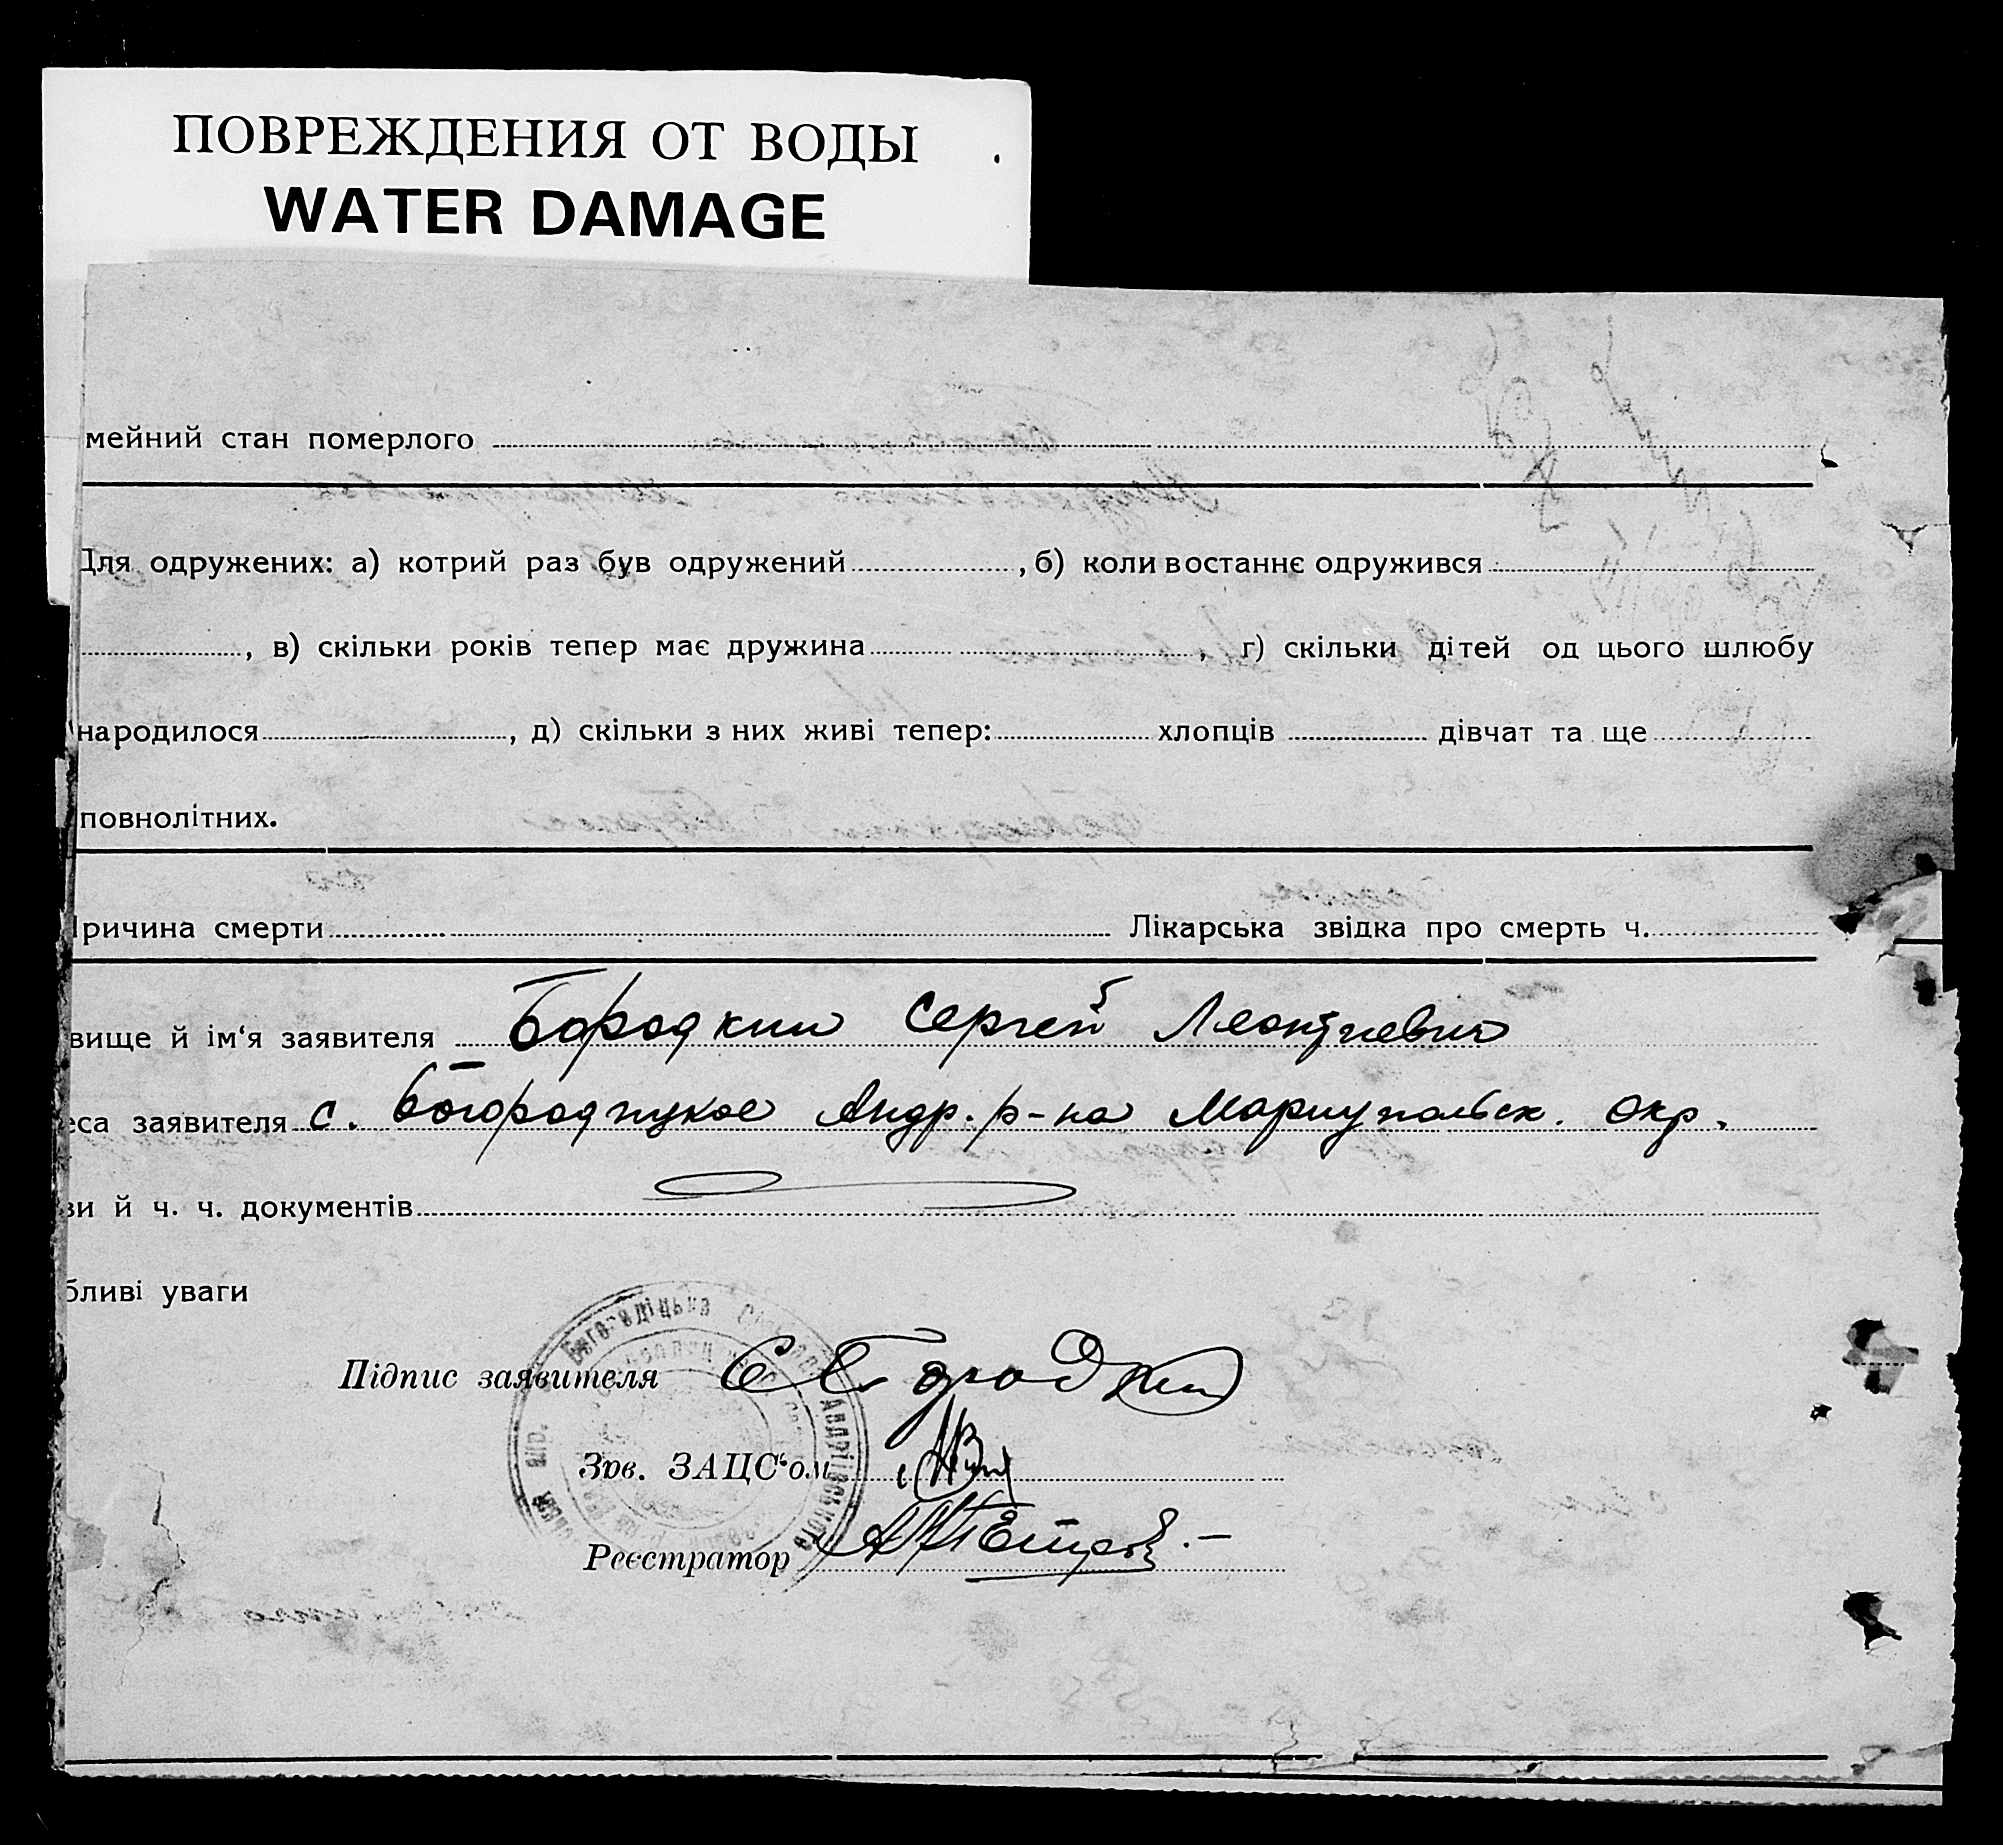 ПОВРЕЖДЕНИЯ ОТ ВОДЫ
WATER DAMAGE
мейний стан померлого
Для одружених: а) котрий раз був одружений , б) коли востаннє одружився
, в) скільки років тепер має дружина , г) скільки дітей од цього шлюбу
народилося , д) скільки з них живі тепер: хлопців дівчат та ще
повнолітних.
Причина смерти Лікарська звідка про смерть ч.
вище й ім‘я заявителя Бородкин Сергей Леонтиевич
еса заявителя с. Богородицкое Андр. р-на Мариупольск. окр.
ви й ч. ч. документів
бливі уваги
Богородіцька
Андріївського
Підпис заявителя С Бородкин
Зав. ЗАЦС‘ом
Реєстратор